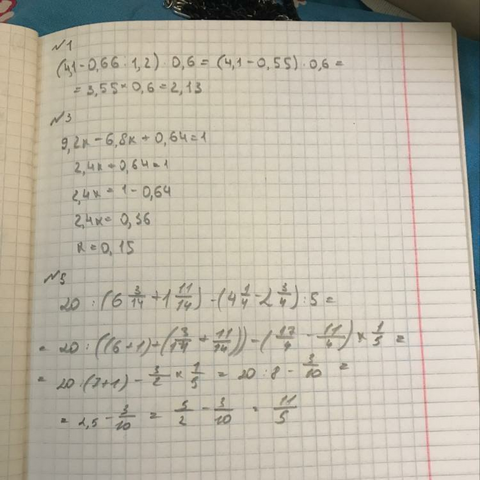 №1
(4,1-0,66·1,2)·0,6 = (4,1-0,55)·0,6 =
= 3,55·0,6 = 2,13
№3
9,2х - 6,8х + 0,64 = 1
2,4х + 0,64 = 1
2,4х = 1 - 0,64
2,4х = 0,36
х = 0,15
№5
20 : (6 3/14 + 1 11/14) - (4 1/4 - 2 3/4) : 5 =
= 20 : ((6+1)+(3/14 + 11/14)) - (17/4 - 11/4) × 1/5 =
= 20 : (7+1) - 3/2 × 1/5 = 20 : 8 - 3/10 =
= 2,5 - 3/10 = 5/2 - 3/10 = 11/5